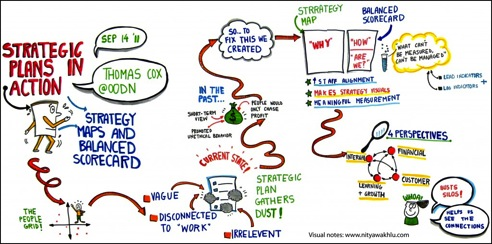 STRATEGIC
PLANS IN
ACTION
SEP 14 '11
THOMAS COX
@OODN
STRATEGY
MAPS AND
BALANCED
SCORECARD
THE
PEOPLE
GRID!
VAGUE
DISCONNECTED
TO "WORK"
IRRELEVENT
CURRENT STATE!
STRATEGIC
PLAN
GATHERS
DUST!
IN THE
PAST...
SHORT-TERM
VIEW
PROMOTED UNETHICAL BEHAVIOR
PEOPLE WOULD
ONLY CHASE
PROFIT
SO... TO
FIX THIS WE
CREATED
STRATEGY
MAP
BALANCED
SCORECARD
"WHY"
"HOW"
ARE
WE?"
"WHAT CAN'T
BE MEASURED,
CAN'T BE
MANAGED"
LEAD INDICATORS
LAG INDICATORS
STAFF ALIGNMENT
MAKES STRATEGY VISUAL
MEANINGFUL MEASUREMENT
4 PERSPECTIVES
INTERNAL
FINANCIAL
CUSTOMER
LEARNING + GROWTH
WHOA!
BUSTS
SILOS!
HELPS US
SEE THE
CONNECTIONS
Visual notes: www.nityawakhlu.com